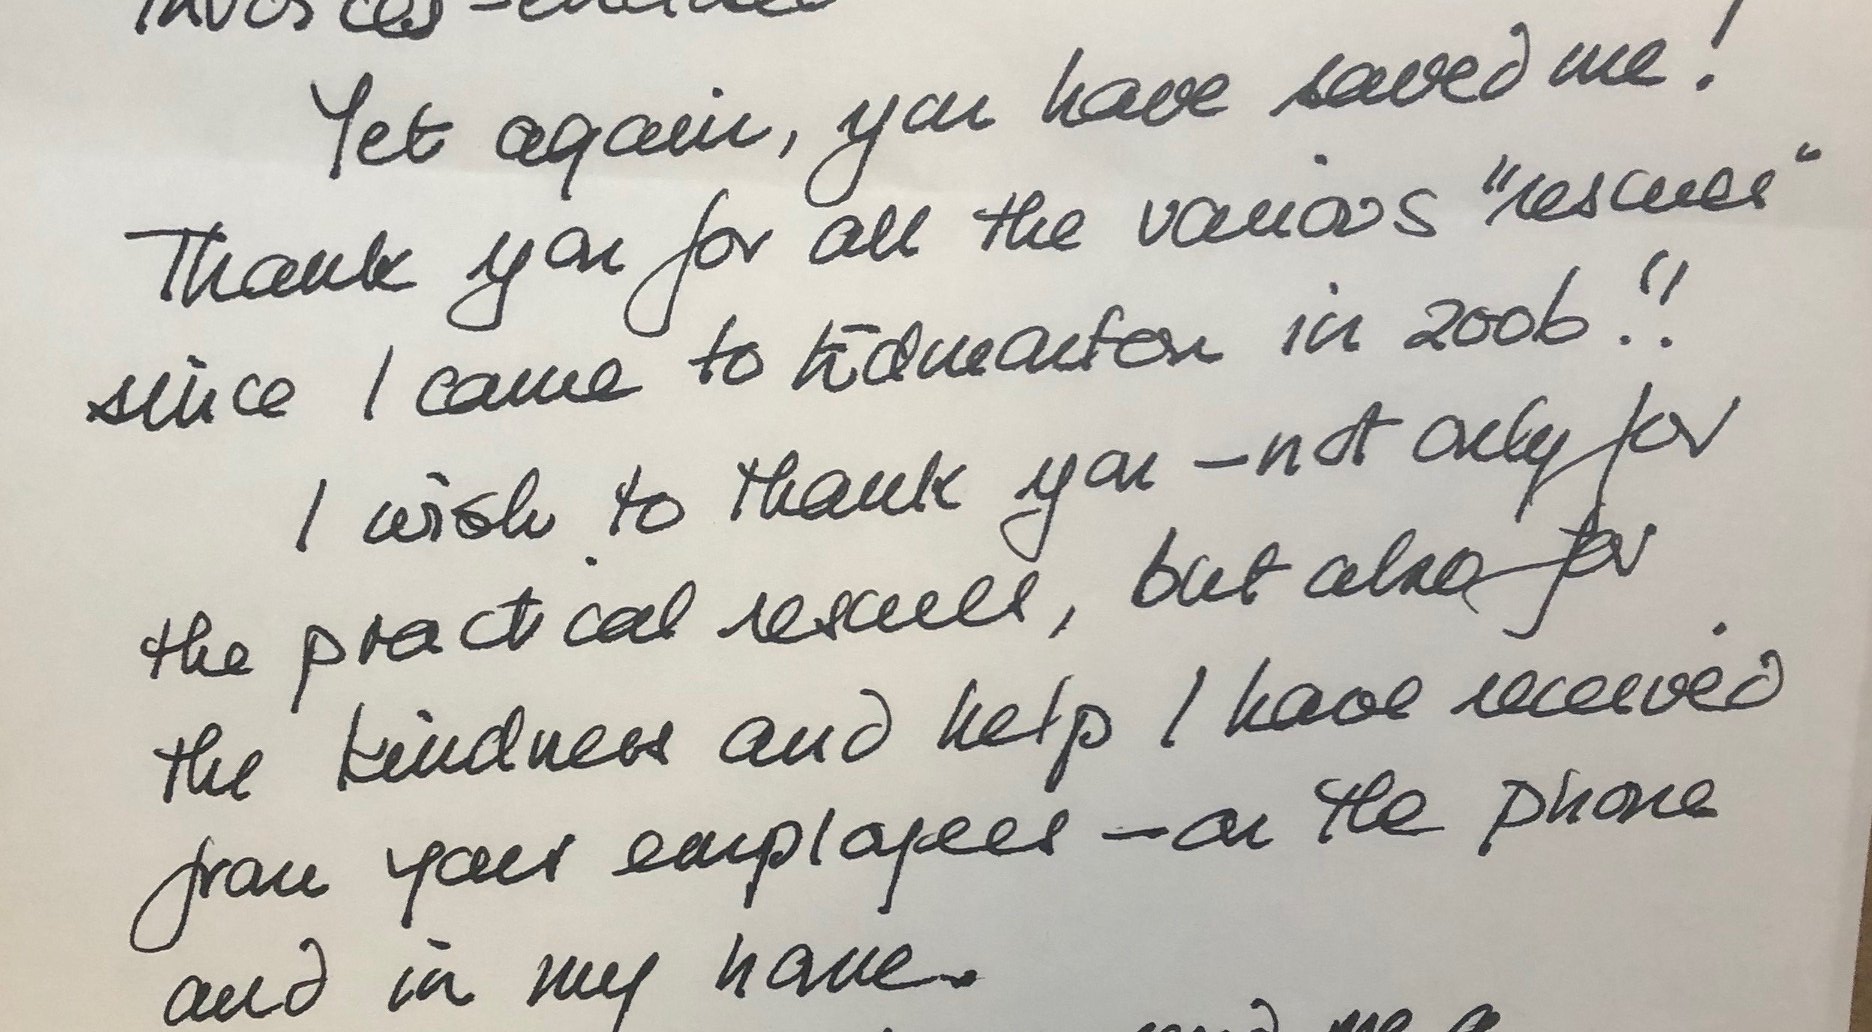 invoices -
Yet again, you have saved me!
Thank you for all the various "rescues"
since I came to Edmonton in 2006!!
I wish to thank you - not only for
the practical rescues, but also for
the kindness and help I have received
from your employees - on the phone
and in my home.
me a